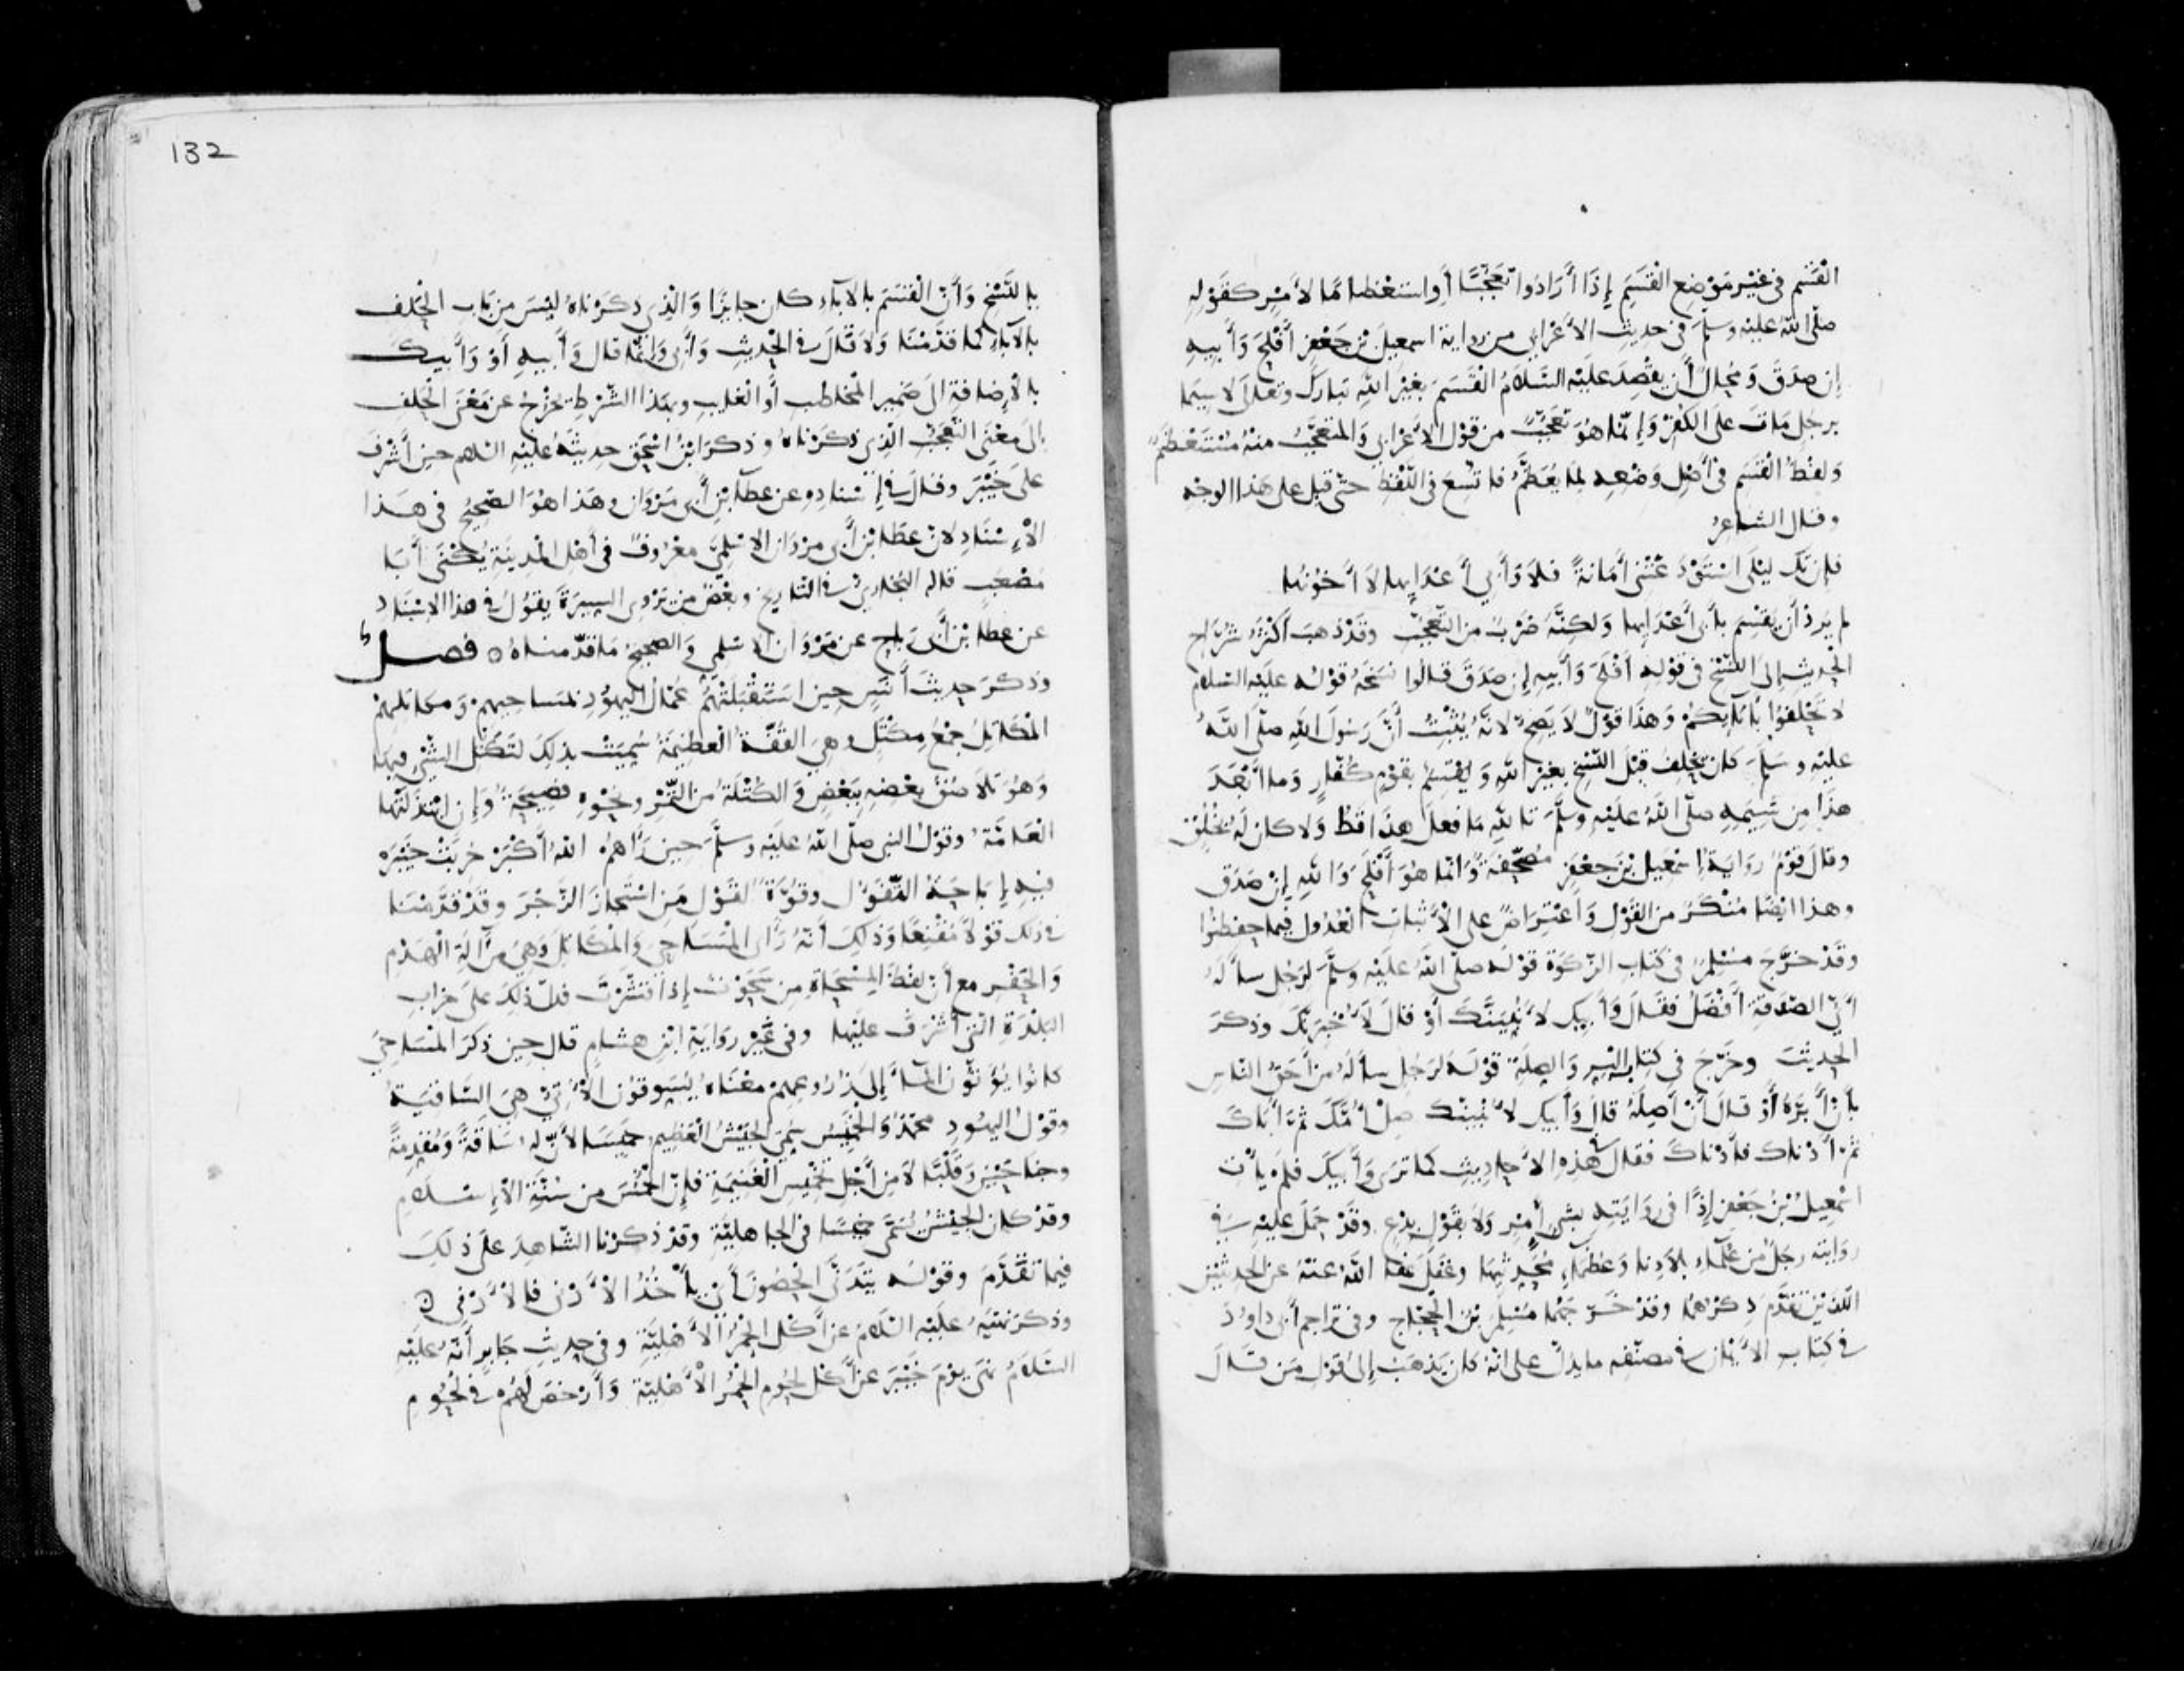 القَسَم في غَيْر مَوْضِع القَسَمِ إِذَا أَرَادُوا تَعَجُّبًا أَوِ استعْظامًا لأَمْرٍ كقَوْلِهِ
صلّى الله عليْه وسلّمَ في حديثِ الأَعْرَابي من رواية اسمعيلَ بْنِ جَعْفر أَفْلَحَ وَأَبِيهِ
إن صدَقَ وَمُحالٌ أَن يقْصِدَ عليْه السّلامُ القَسَمَ بغيْرِ اللهِ تبارَكَ وتعالَى لا سيَما
برجُلٍ مَاتَ علَى الكُفر وَإنّما هُوَ تعَجُّبٌ من قوْل الأَعْرَابي وَالمُتعَجَّبُ منْهُ مُسْتَعْظَمٌ
وَلفْظُ القَسَم في أَصْلِ وَضْعِه لمَا يُعَظَّمُ فاتُّسِعَ في اللّفْظِ حتّى قيل على هذا الوجْه
وقال الشاعرُ
فإن تكُ ليْلَى اسْتَوْدَعَتْني أَمَانةً فلاَ وَأَبي أَعْدَائِها لاَ أَخُونُها
لم يُرِدْ أن يقْسِم بأَبي أَعْدَائِها وَلكِنَّهُ ضَرْبٌ من التّعجُّب وقَدْ ذهبَ أَكثرُ شُرّاح
الحديث إلى النّسْخ في قوْلِه أَفْلَحَ وَأَبِيهِ إن صَدَقَ قالوا نسَخَهُ قوْلُه عليْه السلامُ
لا تَحْلِفوا بآبَائِكُمْ وَهذا قوْلٌ لاَ يَصِحُّ لأنّهُ لمْ يَثْبُتْ أَنَّ رَسُولَ اللهِ صلّى اللهُ
عليْه وسَلّمَ كان يحْلِفُ قبْلَ النّسْخ بغيْرِ اللهِ وَيُقْسِمُ بقوْمٍ كُفّارٍ وَما أَبْعَدَ
هذَا مِن شِيَمِهِ صلّى اللهُ عليْهِ وسَلَّمَ تاللهِ مَا فعلَ هذَا قطُّ وَلا كان لَهُ بخُلُقٍ
وقالَ قوْمٌ رِوَايَةُ إِسْمعِيل بْنِ جعْفرٍ مُصَحَّفَةٌ وَإنّما هُوَ أَفْلَحَ وَاللهِ إنْ صَدَقَ
وهذا أيْضًا مُنْكَرٌ من القَوْلِ وَاعْتِرَاضٌ على الأَثْباتِ العُدُولِ فيما حفِظُوا
وقدْ خرَّجَ مُسْلِمٌ في كتابِ الزّكوة قوْلَه صلّى اللهُ عليْه وسلّمَ لرجُلٍ سأَلَهُ
أَيُّ الصّدَقةِ أَفْضَلُ فقَالَ وَأَبِيكَ لأُنَبِّيَنَّكَ أَوْ قالَ لأُخْبِرَنَّكَ وذكرَ
الحديثَ وخرَّجَ في كتاب البِرِّ وَالصِّلَةِ قوْلَهُ لرَجُلٍ سأَلَهُ مَنْ أَحَقُّ النّاسِ
بأَنْ أَبَرَّهُ أَوْ قالَ أَنْ أَصِلَهُ قالَ وَأَبيكَ لأُنبِّئَنّكَ صِلْ أُمَّكَ ثمّ أَبَاكَ
ثمّ أَدْناكَ فأَدْناكَ فقالَ في هذِهِ الأَحاديثِ كما ترَى وَأَبيكَ فلَمْ يأْتِ
اسْمعِيلُ بْنُ جَعْفرٍ إذًا في روَايَتِهِ بشىءٍ إمْرٍ وَلا بقَوْلٍ بِدْعٍ وقَدْ حَمَلَ عليْهِ في
روايته رجلٌ من عُلمَاءِ بلادِنا وَعُظمَاءِ مُحَدِّثِيها وغفلَ عفا اللهُ عنْهُ عن الحَديثيْن
اللّذيْن تقدّمَ ذِكْرُهُما وقدْ خَرّجَهُما مُسْلِمُ بْنُ الحجّاج وفي تراجم أَبي داوُدَ
في كِتابِ الأَيْمَانِ في مصنّفِه ما يدُلُّ على أنّهُ كان يذْهَبُ إلى قوْل مَن قالَ
132
بالنّسْخ وَأَنّ القسَمَ بالآباءِ كان جايزًا وَالّذِي ذكرْناهُ ليْسَ من بَابِ الحَلِف
بالآباءِ كما قدّمْنَا وَلا قالَ في الحديثِ وَأَبي وَإنّما قال وَأَبيهِ أَوْ وَأَبيكَ
بالإضافةِ الَى ضميرِ المخاطبِ أَو الغايبِ وبهذا الشّرْطِ يخرُجُ عن مَعْنَى الحَلِف
إلى معْنَى التّعجُّب الّذي ذكرْناهُ وذكرَ ابْنُ اسْحَق حديثَهُ عليْه السّلام حينَ أَشْرفَ
علَى خَيْبَر وقالَ في إسْنادِهِ عن عطاء بْنِ أَبي مَرْوَان وهَذا هُوَ الصّحيحُ في هـذا
الإسْنَادِ لأنّ عطاء بْن أَبي مرْوَان الاسْلَمِيّ معْرُوفٌ في أَهْلِ المدينَةِ يُكْنَى أَبَا
مُصْعَب قاله البُخاريُّ في التّاريخ وبعْضُ من يَرْوِي السّيرَةَ يَقُولُ في هذا الاسْنَادِ
عن عطاء بْن أَبي رَباح عن مَرْوَان الاسْلمي وَالصّحيح مَا قدّمناهُ ه فصـلٌ
وَذكرَ حديثَ أَنَسٍ حين اسْتَقْبَلَتْهُمْ عُمّالُ اليهُودِ بمَساحيهِمْ وَمكاتلِهِمْ
المَكاتِلُ جمْعُ مِكْتَلٍ وهِيَ القُفّةُ العظيمَةُ سُمِّيَتْ بذلِكَ لتَكَتُّلِ الشَّيْءِ فيها
وَهُوَ تلاَصُقُ بعْضِهِ بِبَعْضٍ وَالكُتْلَةُ من التّمْرِ ونَحْوِهِ فصيحَةٌ وَإن ابْتذَلتْها
العَامّةُ وقوْلُ النبي صلّى اللهُ عليْه وسلّمَ حين رَآهُمُ اللهُ أَكْبَرُ خرِبَتْ خيْبَرُ
فيهِ إبَاحَةُ التّفَؤُّلِ وقُوّةٌ لقَوْلِ مَن اسْتَجازَ الزّجْرَ وقدْ قدّمْنَا
في ذلك قوْلاً مُقْنِعًا وذَلِكَ أَنّهُ رَأَى المسَاحِيَ وَالمَكاتِلَ وَهِيَ مِن آلَةِ الهَدْم
وَالحَفْرِ مع أَنّ لفظَ المِسْحَاةِ مِن سَحَوْتُ إذا قشَرْتَ فدلّ ذلِكَ علَى خرابِ
البَلْدَةِ الّتي أَشْرَفَ عليْها وفي غيْر رِوَايَةِ ابْنِ هشام قال حين ذكرَ المسَاحِيَ
كانُوا يُؤَتُّون المَاءَ إلى زُرُوعِهِمْ معْنَاهُ يَسُوقُون الأَتِيُّ هِيَ السّاقيَةُ
وقوْلُ اليهُودِ محمّدٌ وَالخَميسُ سُمِّيَ الجيْشُ العظيمُ خميسًا لأَنّ لهُ سَاقَةً وَمُقدِّمةً
وجَناحَيْنِ وَقلْبًا لاَ مِن أَجْلِ تَخْمِيس الغَنيمَةِ فإنّ الخُمُسَ من سُنّةِ الإِسْلاَمِ
وقدْ كان الجيْشُ يُسَمَّى خميسًا في الجاهليّةِ وقدْ ذكرْنا الشّاهِدَ علَى ذلِكَ
فيما تقَدّمَ وقوْلُه يَتَدَنّى الحُصُونَ أَي يأْخُذُ الأَدْنَى فالأَدْنَى ه
وذكرَ نهْيَهُ عليْه السّلامُ عن أَكْلِ الحُمُرِ الأَهْليّةِ وفي حديثِ جابرٍ أَنّهُ عليْهِ
السّلامُ نهَى يوْمَ خيْبَر عن أَكْل لحُوم الحُمُر الأَهْليّةِ وَأَرْخصَ لَهُمْ في لحُومِ